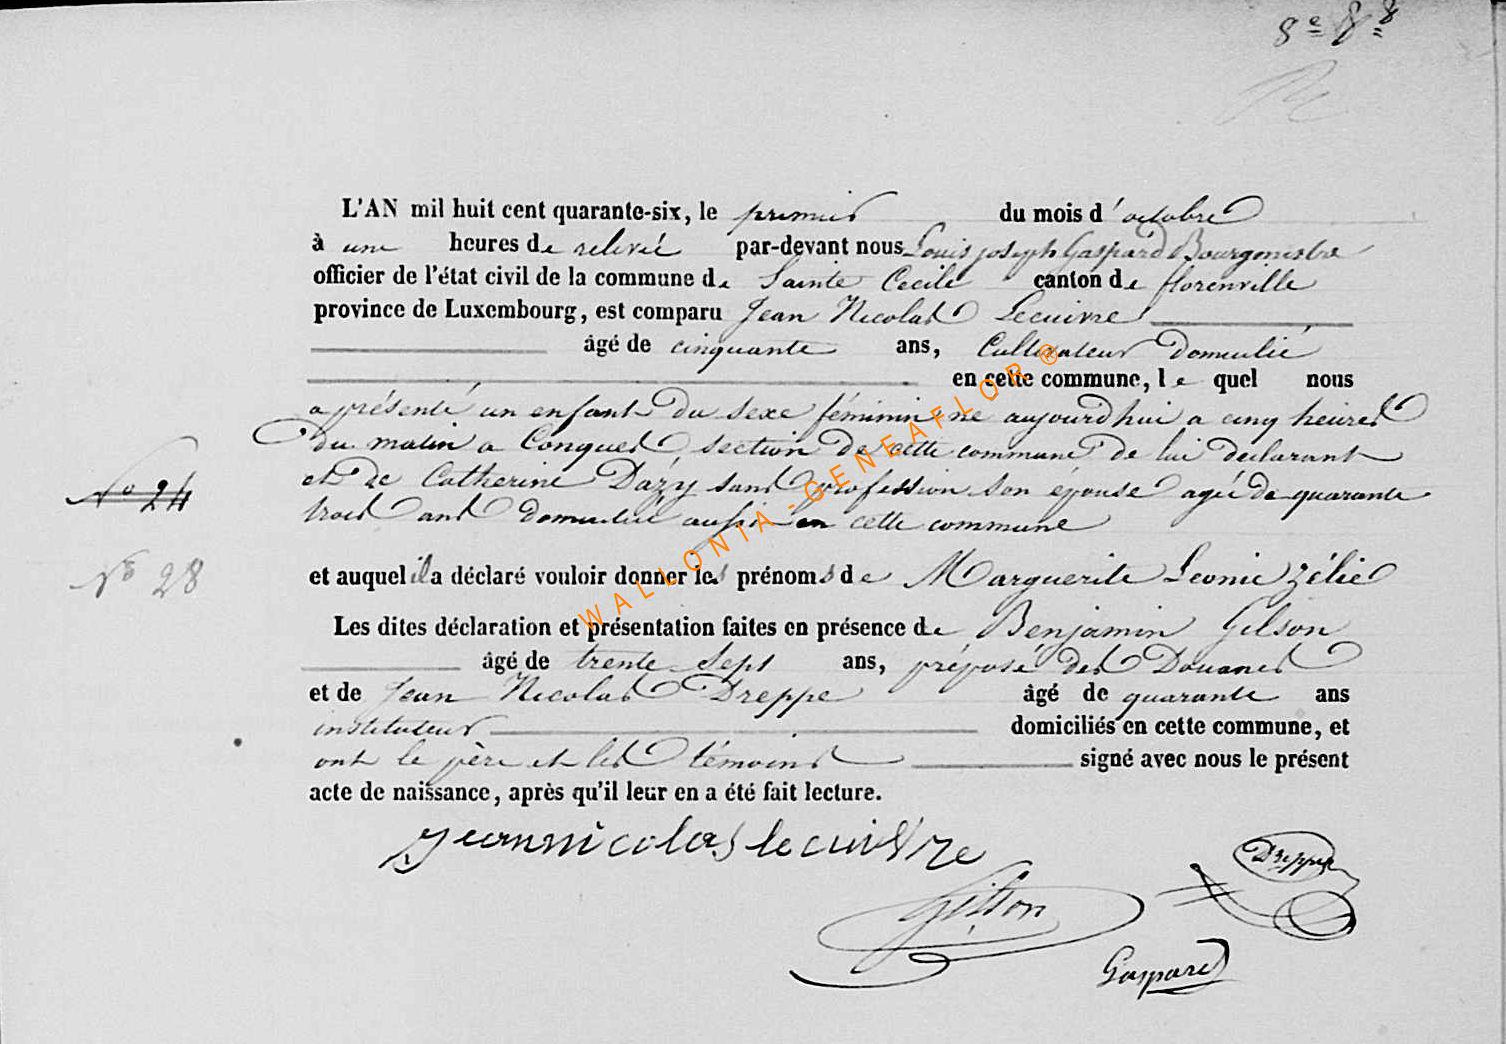 8e 8 8
L'AN mil huit cent quarante-six, le premier du mois d'octobre
à une heures de relevée par-devant nous Louis joseph Gaspard Bourgmestre
officier de l'état civil de la commune de Sainte Cecile canton de florenville
province de Luxembourg, est comparu Jean Nicolas Lecuivre
âgé de cinquante ans, Cultivateur Domicilié
en cette commune, le quel nous
a présenté un enfant Du sexe féminin ne aujourd'hui a cinq heures
Du matin a Conques section De cette commune De lui declarant
et De Catherine Dazy sans profession son épouse agée De quarante
trois ans domiciliée aussi en cette commune
No 24
No 28
et auquel il a déclaré vouloir donner les prénoms de Marguerite Leonie Zélie
Les dites déclaration et présentation faites en présence de Benjamin Gilson
âgé de trente-sept ans, préposé des Douanes
et de Jean Nicolas Dreppe âgé de quarante ans
instituteur domiciliés en cette commune, et
ont le père et les témoins signé avec nous le présent
acte de naissance, après qu'il leur en a été fait lecture.
jean nicolas lecuivre
Dreppe
Gilson
Gaspard
WALLONIA-GENEAFLOR ®